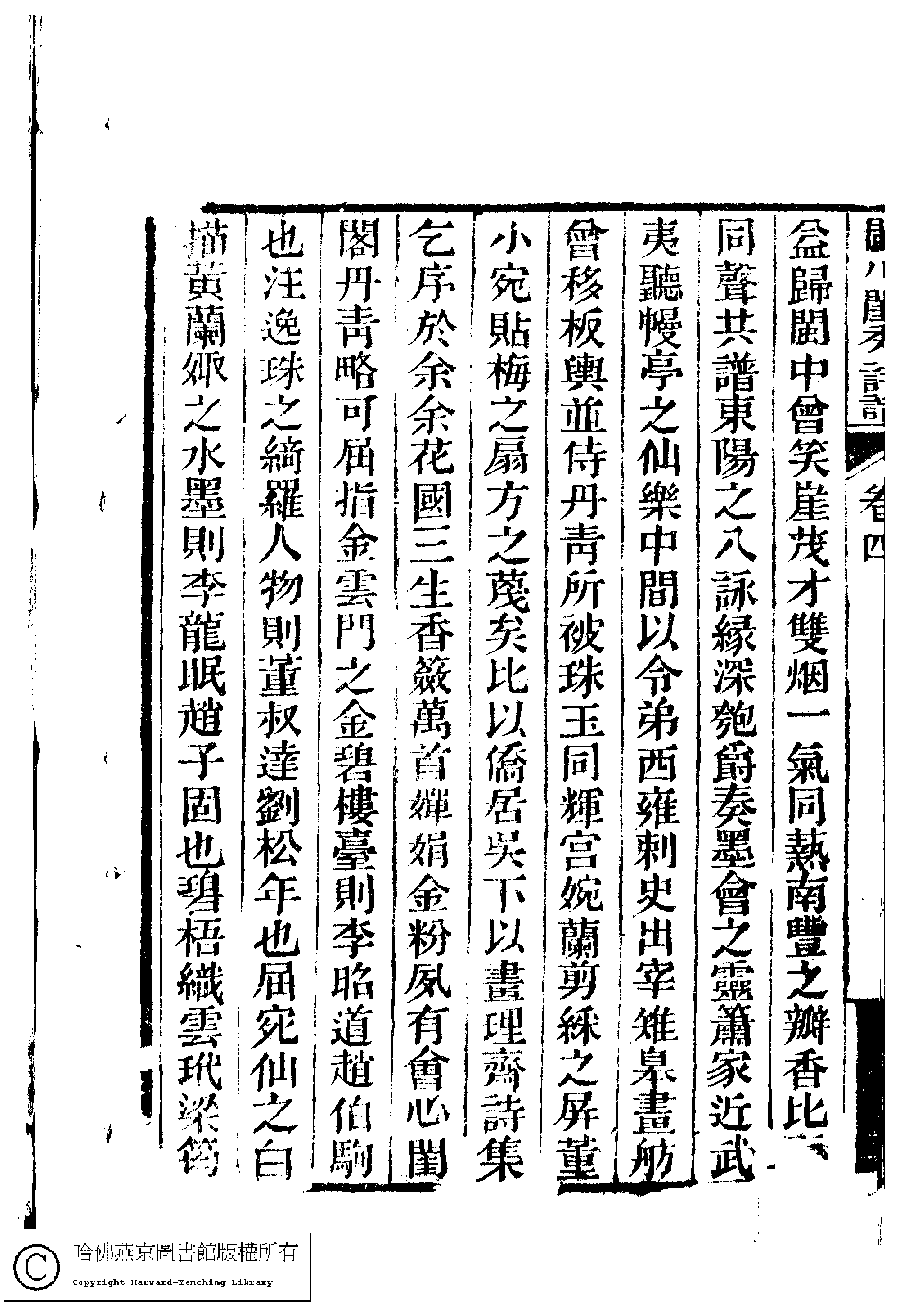 閨秀詩話 卷四
益歸閩中曾笑崖茂才雙烟一氣同熱南豐之瓣香比
同聲共譜東陽之八詠緣深匏爵奏墨會之靈簫家近武
夷聽幔亭之仙樂中間以令弟西雍刺史出宰雉臯畫舫
曾移板輿並侍丹靑所被珠玉同輝宫婉蘭剪綵之屏董
小宛貼梅之扇方之蔑矣比以僑居吳下以畫理齋詩集
乞序於余余花國三生香籢萬首嬋娟金粉夙有會心閨
閣丹靑略可屈指金雲門之金碧樓臺則李昭道趙伯駒
也汪逸珠之綺羅人物則董叔達劉松年也屈宛仙之白
描黃蘭娵之水墨則李龍眠趙子固也碧梧織雲玳梁筠
哈佛燕京圖書館版權所有
Copyright Harvard-Yenching Library